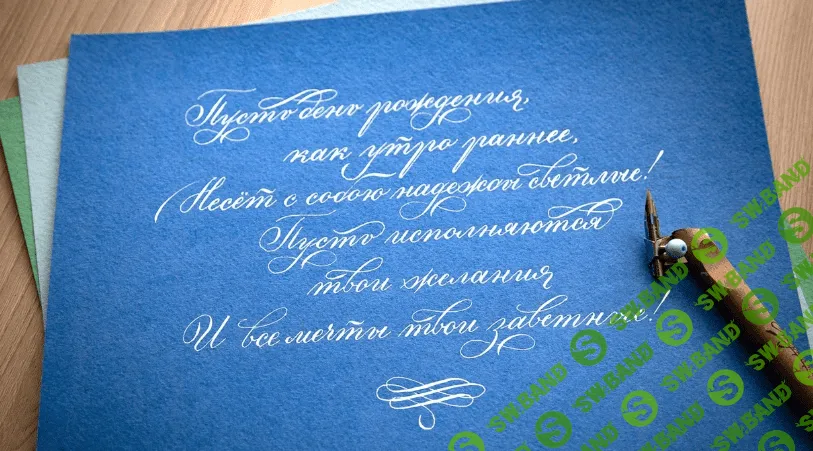 Пусть день рождения,
как утро раннее,
Несёт с собою надежды светлые!
Пусть исполняются
твои желания
И все мечты твои заветные!
SW.BAND
SW.BAND
SW.BAND
SW.BAND
SW.BAND
SW.BAND
SW.BAND
SW.BAND